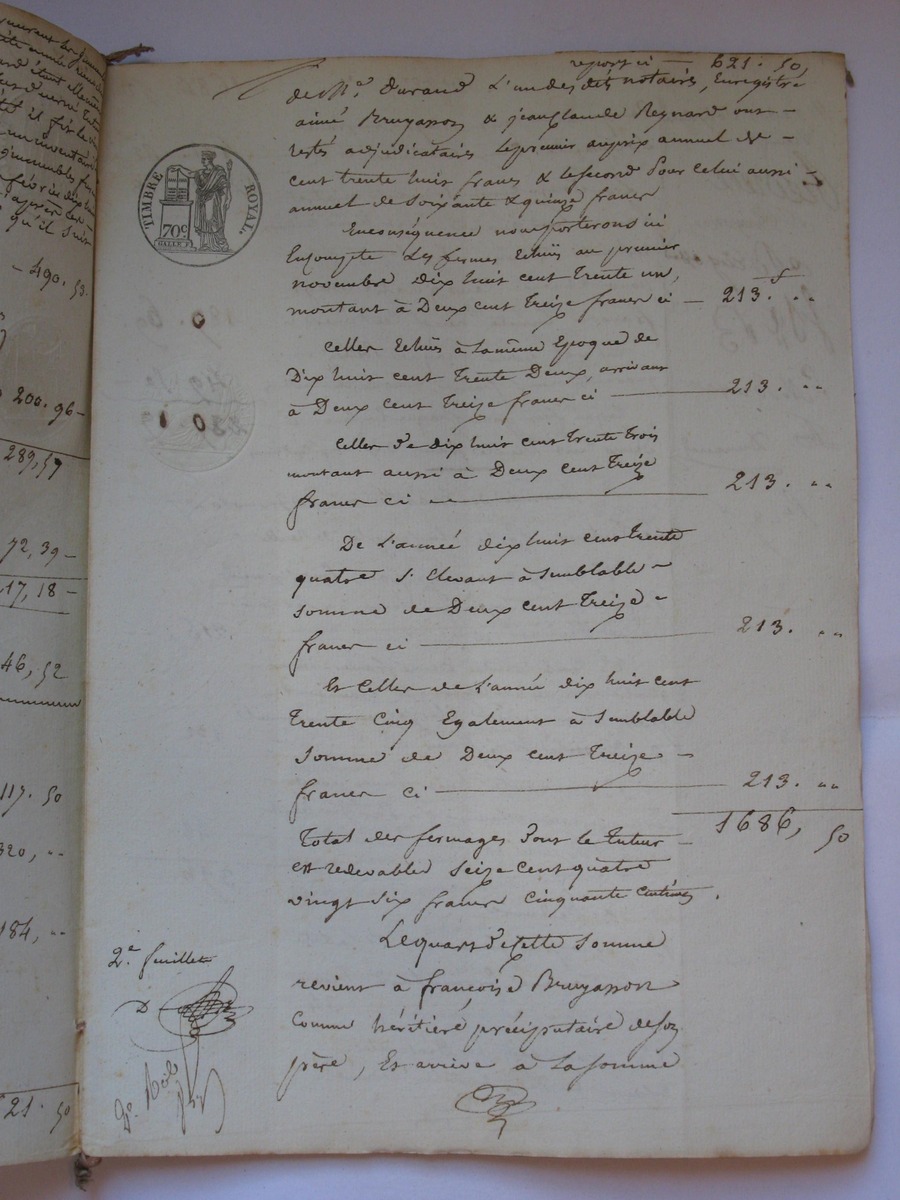 report ci — 621. 50,
de Me. Durand L'un des dits notaires, Enregistré
aimé Bruyasson & jean Claude Reynard ont
restés adjudicataires Le premier au prix annuel de
cent trente huit francs & le second pour celui aussi
annuel de soixante & quinze francs
En conséquence nous porterons ici
En compte Les fermes Echües au premier
novembre dix huit cent trente un,
montant à Deux cent Treize francs ci — 213. "
Celles Echües à La même Epoque de
Dix huit cent trente Deux, arrivant
à Deux cent Treize francs ci — 213. "
Celles de dix huit cent trente trois
montant aussi à Deux cent Treize
francs ci — 213. "
De L'année dix huit cent trente
quatre S'Elevant à Semblable
Somme de Deux cent Treize
francs ci — 213. "
Et Celles de L'année dix huit cent
trente Cinq Egalement à Semblable
Somme de Deux cent Treize
francs ci — 213. "
1686, 50
Total des fermages dont le tuteur
est redevable Seize cent quatre
vingt six francs cinquante centimes.
Le quart de cette Somme
revient à françoise Bruyasson
Comme héritière préciputaire de son
père, Et arrive à La somme
TIMBRE ROYAL.
70c
2e feuillet
D
490. 53
200. 96
289,57
72, 39
17, 18
46, 52
117. 50
320, "
184, "
21. 50